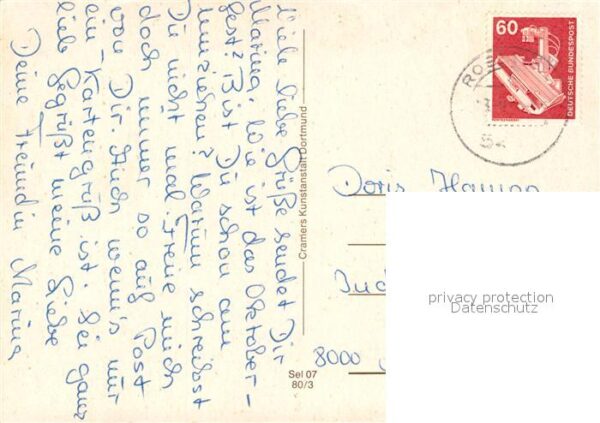 Viele liebe Grüße sendet Dir
Marina. Wie ist das Oktober-
fest? Bist Du schon am
umziehen? Warum schreibst
Du nicht mal. Freue mich
doch immer so auf Post
von Dir. Auch wenn's nur
ein Kartengruß ist. Sei ganz
lieb gegrüßt meine Liebe
Deine Freundin Marina
Cramers Kunstanstalt Dortmund
Sel 07
80/3
60
DEUTSCHE BUNDESPOST
Doris
8000
privacy protection
Datenschutz